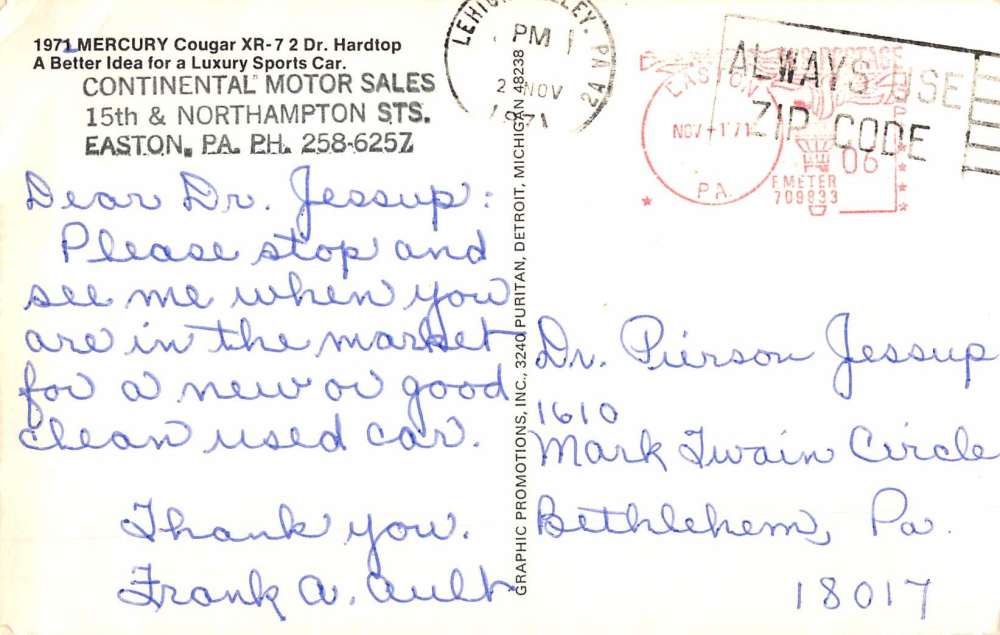 1971 MERCURY Cougar XR-7 2 Dr. Hardtop
A Better Idea for a Luxury Sports Car.
CONTINENTAL MOTOR SALES
15th & NORTHAMPTON STS.
EASTON, PA. PH. 258-6257
Dear Dr. Jessup:
Please stop and
see me when you
are in the market
for a new or good
clean used car.
Thank you.
Frank A. Ault
GRAPHIC PROMOTIONS, INC., 3240 PURITAN, DETROIT, MICHIGAN 48238
LEHIGH VALLEY, PA
PM
2 NOV
1971
ALWAYS USE
ZIP CODE
EASTON
NOV - 1 '71
PA.
POSTAGE
06
METER
709833
Dr. Pierson Jessup
1610
Mark Twain Circle
Bethlehem, Pa.
18017